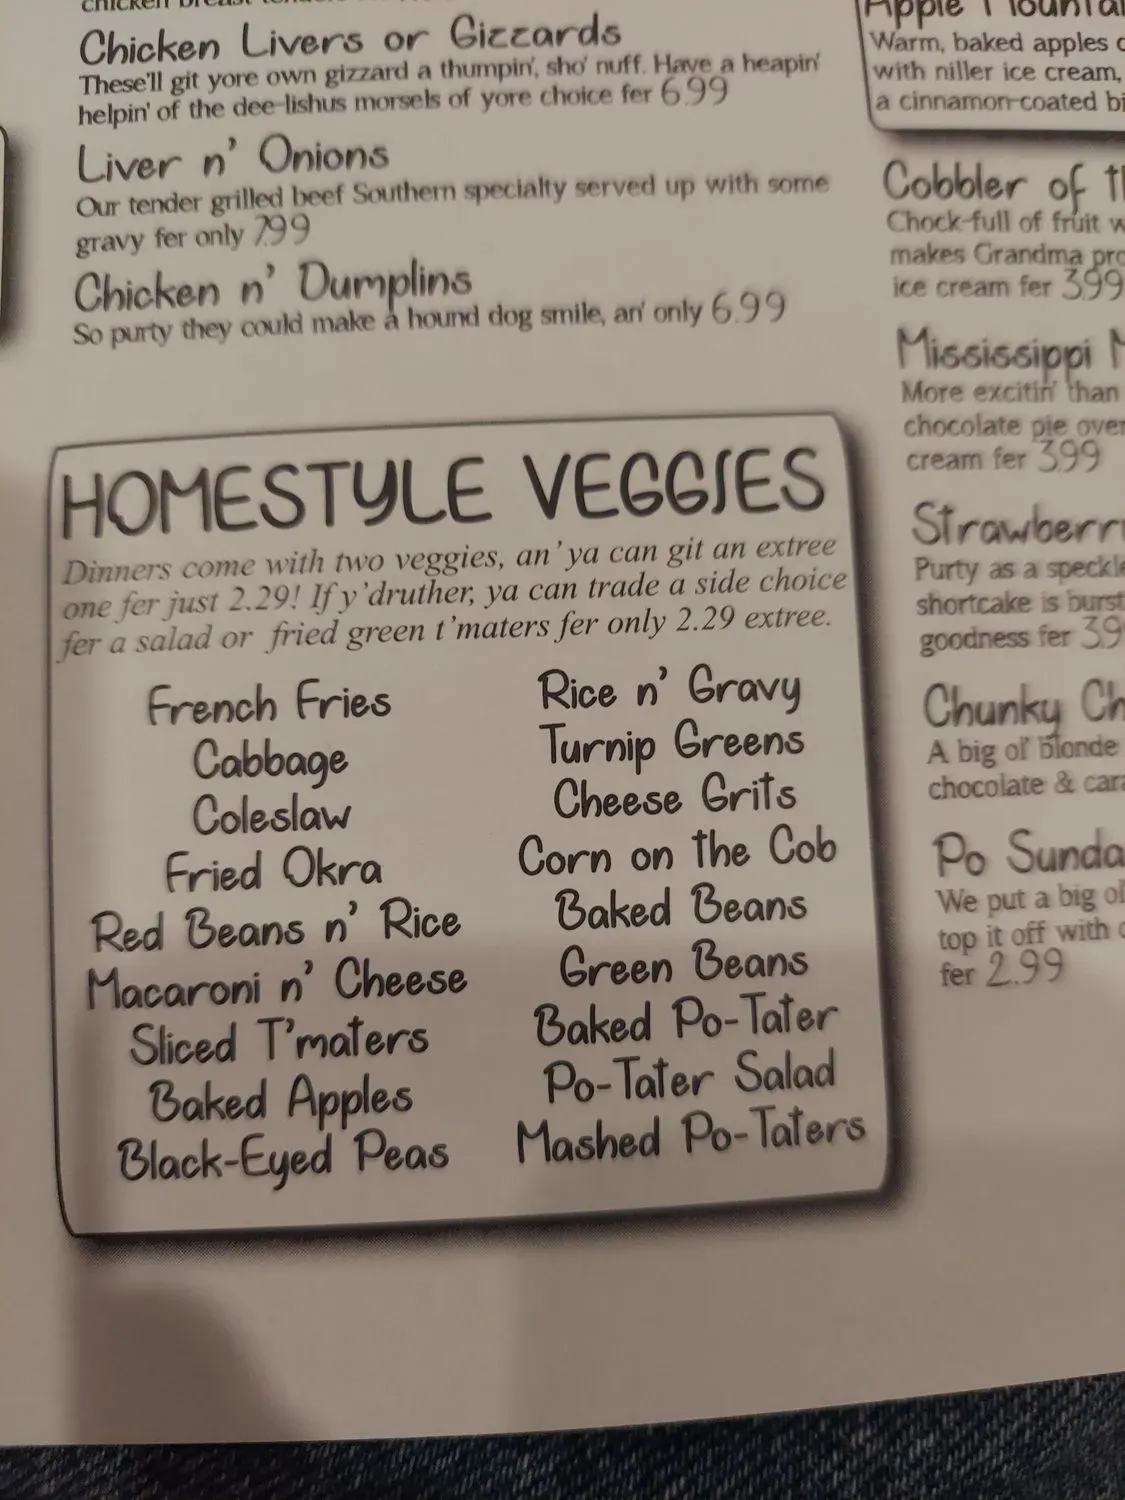 Chicken Livers or Gizzards
These'll git yore own gizzard a thumpin', sho' nuff. Have a heapin'
helpin' of the dee-lishus morsels of yore choice fer 6.99
Liver n' Onions
Our tender grilled beef Southern specialty served up with some
gravy fer only 7.99
Chicken n' Dumplins
So purty they could make a hound dog smile, an' only 6.99
HOMESTYLE VEGGIES
Dinners come with two veggies, an' ya can git an extree
one fer just 2.29! If y'druther, ya can trade a side choice
fer a salad or fried green t'maters fer only 2.29 extree.
French Fries
Cabbage
Coleslaw
Fried Okra
Red Beans n' Rice
Macaroni n' Cheese
Sliced T'maters
Baked Apples
Black-Eyed Peas
Rice n' Gravy
Turnip Greens
Cheese Grits
Corn on the Cob
Baked Beans
Green Beans
Baked Po-Tater
Po-Tater Salad
Mashed Po-Taters
Apple
Warm, baked apples
with niller ice cream,
a cinnamon-coated
Cobbler of
Chock-full of fruit
makes Grandma
ice cream fer 3.99
Mississippi
More excitin' than
chocolate pie over
cream fer 3.99
Purty as a
shortcake is
goodness fer
Chunky
A big ol' blonde
chocolate &
Po
We put a big
top it off with
fer 2.99